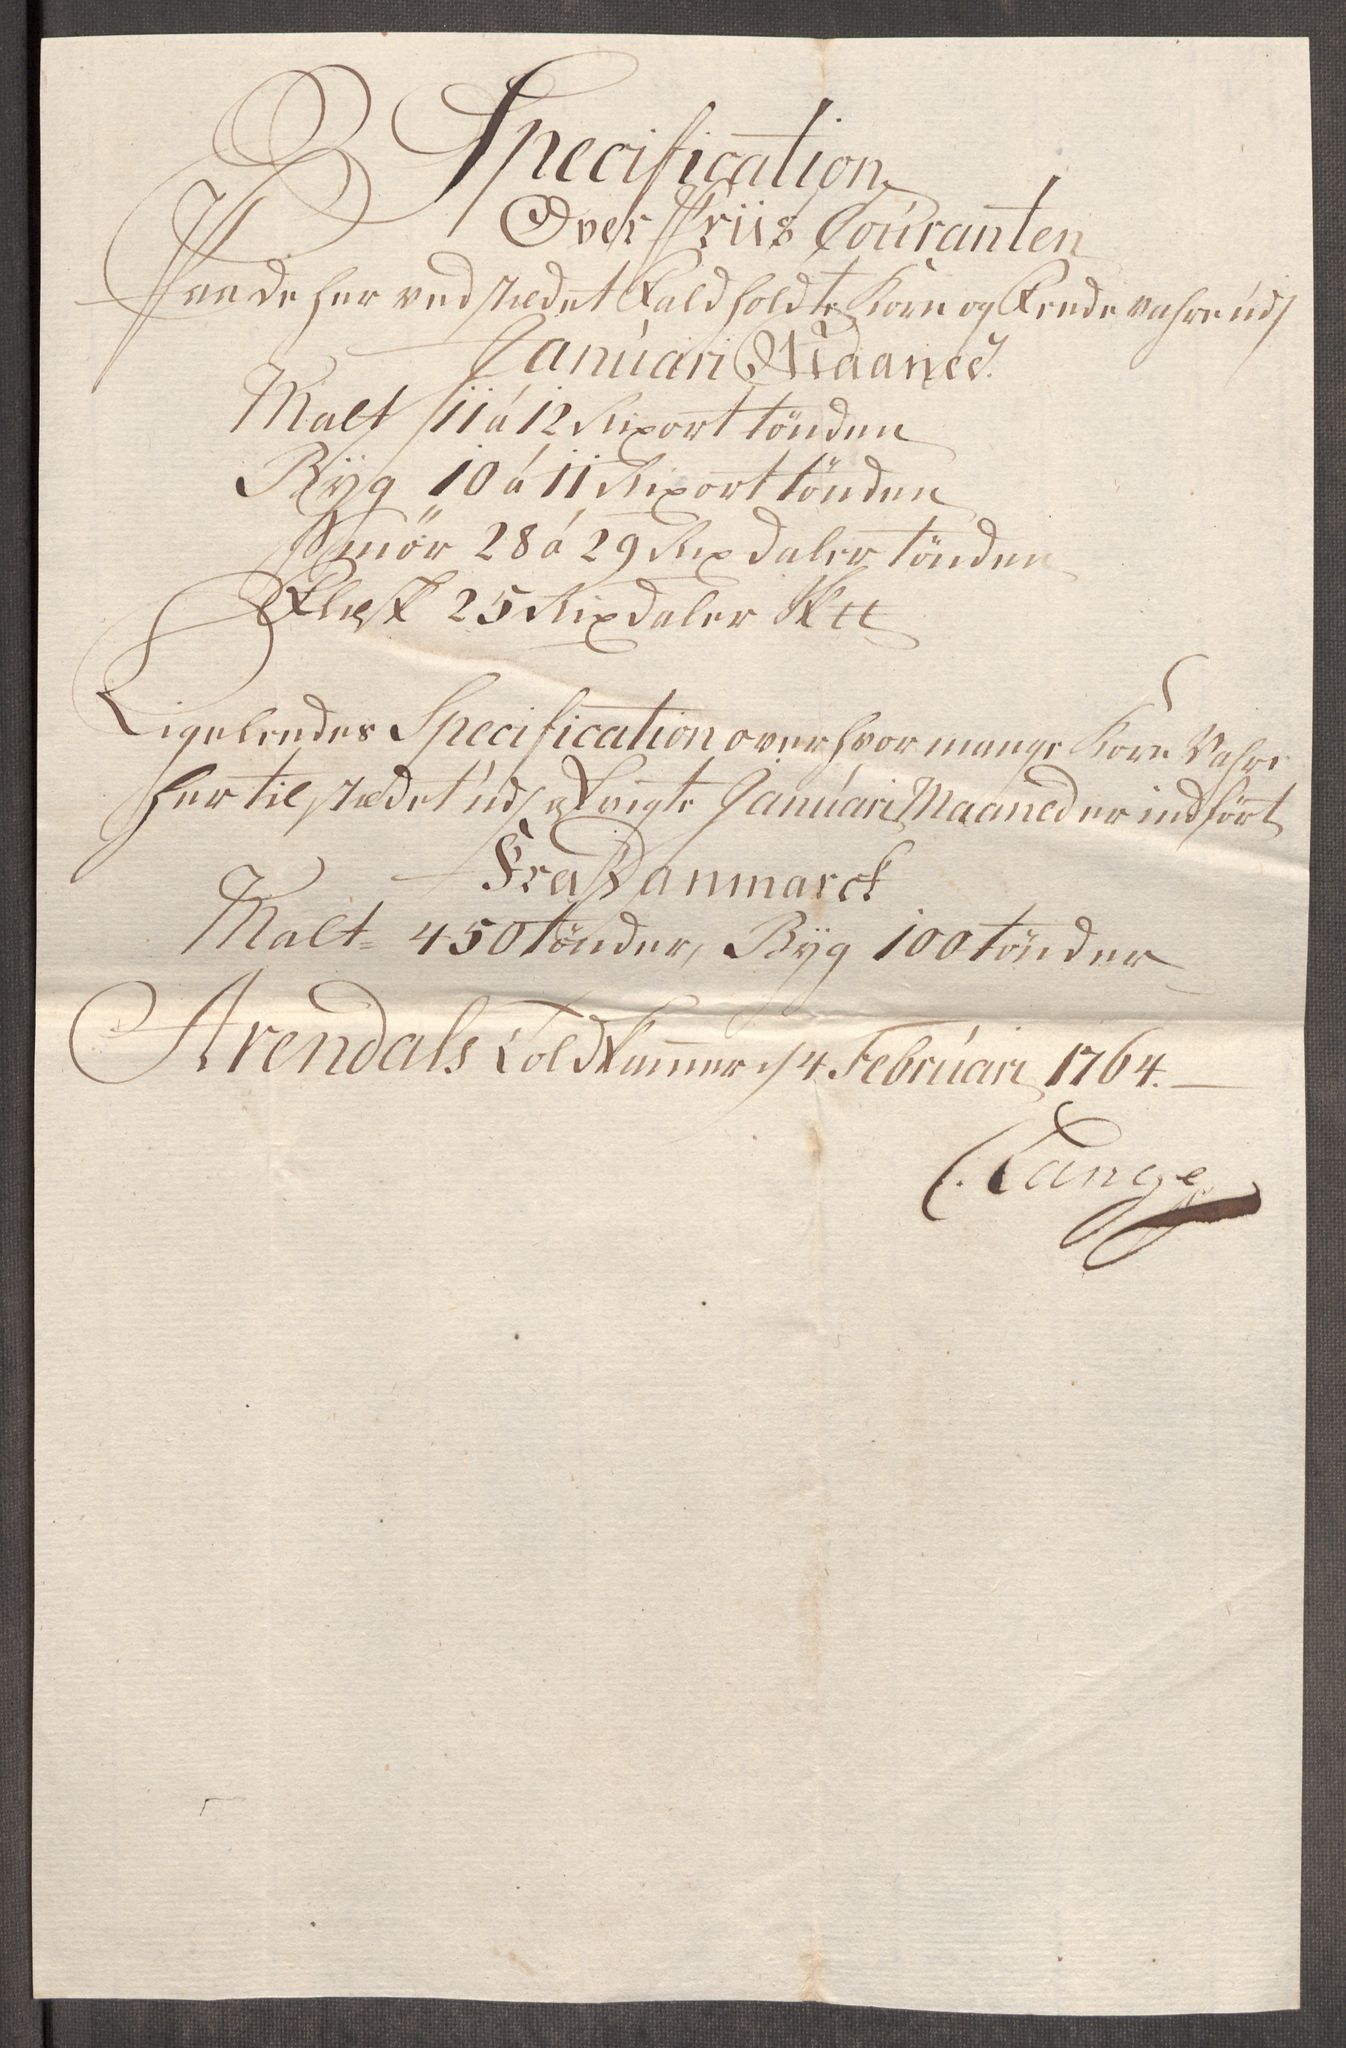 Specification
Over Priis Couranten
Paa de her ved stædet Faldholdte Korn og Fede vahre udj
Januari Maaned.
Malt 11 á 12 Rixort tönden
Byg 10 á 11 Rixort tönden
Smör 28 á 29 Rixdaler tönden
Flesk 25 Rixdaler
Ligeledes Specification over hvor mange Korn Vahre
her til stædet udj Januari Maaned er indfört
Fra Danmarck
Malt 450 tönder, Byg 100 tönder
Arendals Toldkammer d 4 Februari 1764.
C. Lange